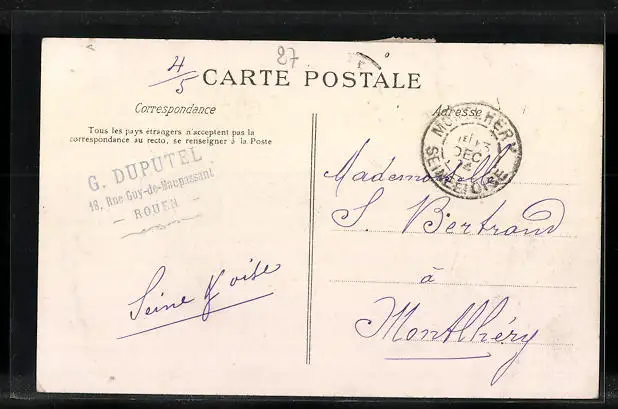 4/5
27
CARTE POSTALE
Correspondance
Adresse
Tous les pays étrangers n'acceptent pas la
correspondance au recto, se renseigner à la Poste
G. DUPUTEL
18, Rue Guy-de-Maupassant
- ROUEN -
MONTLHERY
DEC
SEINE-ET-OISE
Mademoiselle
S. Bertrand
à
Montlhéry
Seine & oise